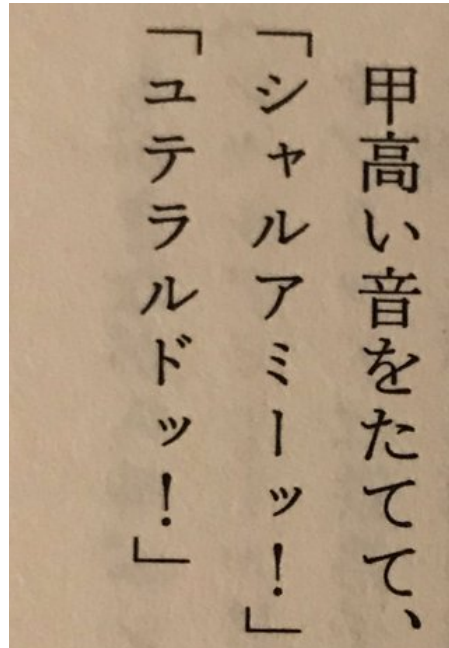 甲高い音をたてて、
「シャルアミーッ！」
「ユテラルドッ！」